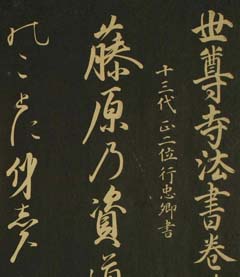 世尊寺法書巻
十三代 正二位行忠卿書
藤原乃資
のことに